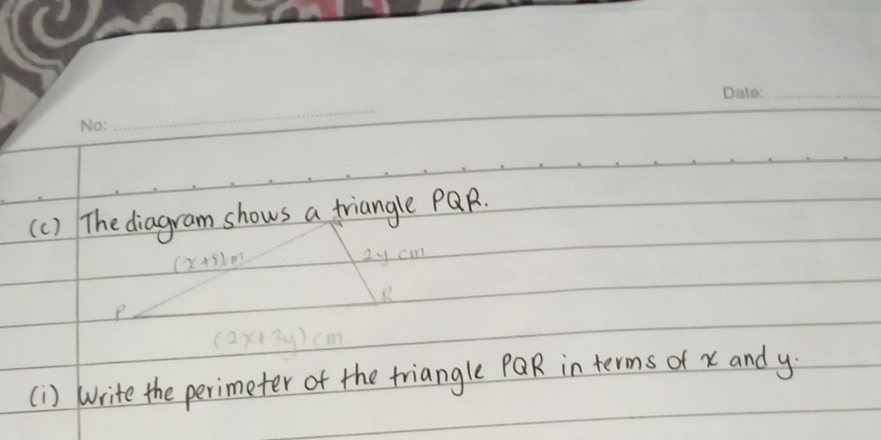 Date:
No:
(c) The diagram shows a triangle PQR.
2y cm
P
R
(2x+3y) cm
(i) Write the perimeter of the triangle PQR in terms of x and y.